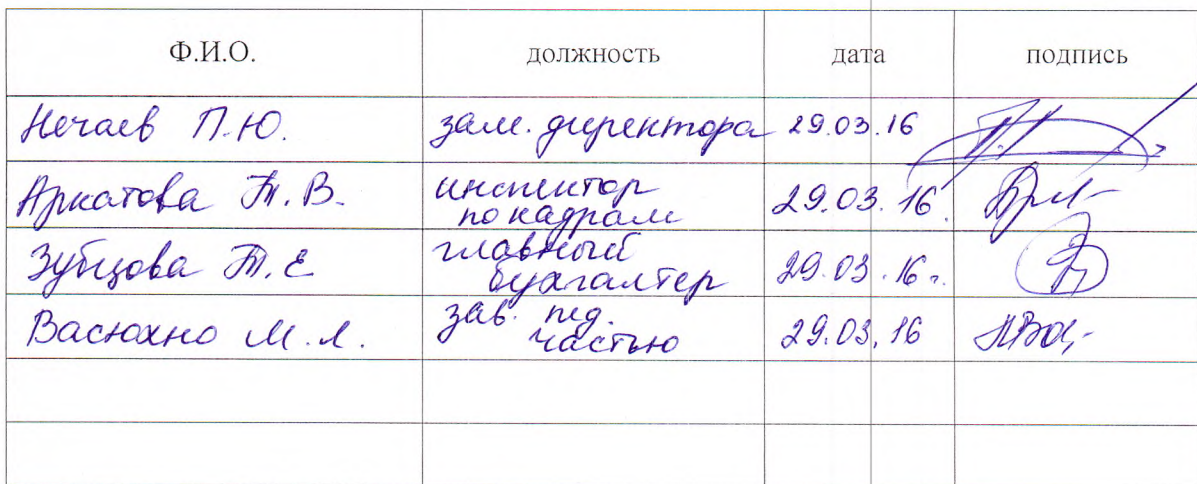 Ф.И.О. должность дата подпись
Нечаев П.Ю. зам. директора 29.03.16
Аркатова Т.В. инспектор по кадрам 29.03.16.
Зубцова Т.Е главный бухгалтер 29.03.16 г.
Васюхно М.Л. зав. пед. частью 29.03.16